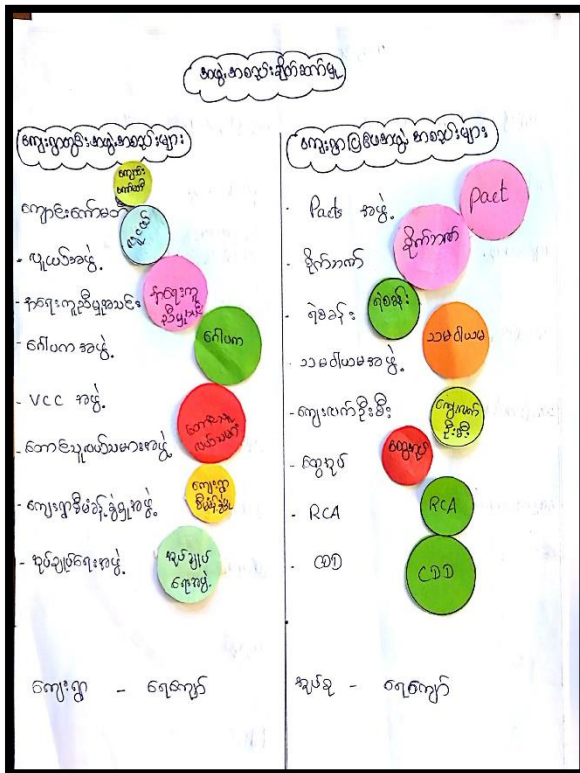 အဖွဲ့အစည်းချိတ်ဆက်မှု
ကျေးရွာတွင်းအဖွဲ့အစည်းများ
ကျောင်းကော်မတီ
ကျောင်းကော်မတီ
လူငယ်
- လူငယ်အဖွဲ့
- နာရေးကူညီမှုအသင်း
နာရေးကူညီမှုအသင်း
- ဂေါပကအဖွဲ့
ဂေါပက
- VCC အဖွဲ့
- တောင်သူလယ်သမားအဖွဲ့
တောင်သူလယ်သမား
- ကျေးရွာစီမံခန့်ခွဲမှုအဖွဲ့
ကျေးရွာစီမံခန့်ခွဲမှု
- အုပ်ချုပ်ရေးအဖွဲ့
အုပ်ချုပ်ရေးအဖွဲ့
ကျေးရွာ - ရေကျော်
ကျေးရွာပြင်ပအဖွဲ့အစည်းများ
- Pacts အဖွဲ့
Pact
- စိုက်ဘဏ်
စိုက်ဘဏ်
- ရဲစခန်း
ရဲစခန်း
- သမဝါယမအဖွဲ့
သမဝါယမ
- ကျေးလက်ဦးစီး
ကျေးလက်ဦးစီး
- ထွေအုပ်
ထွေအုပ်
- RCA
RCA
- CDD
CDD
အုပ်စု - ရေကျော်